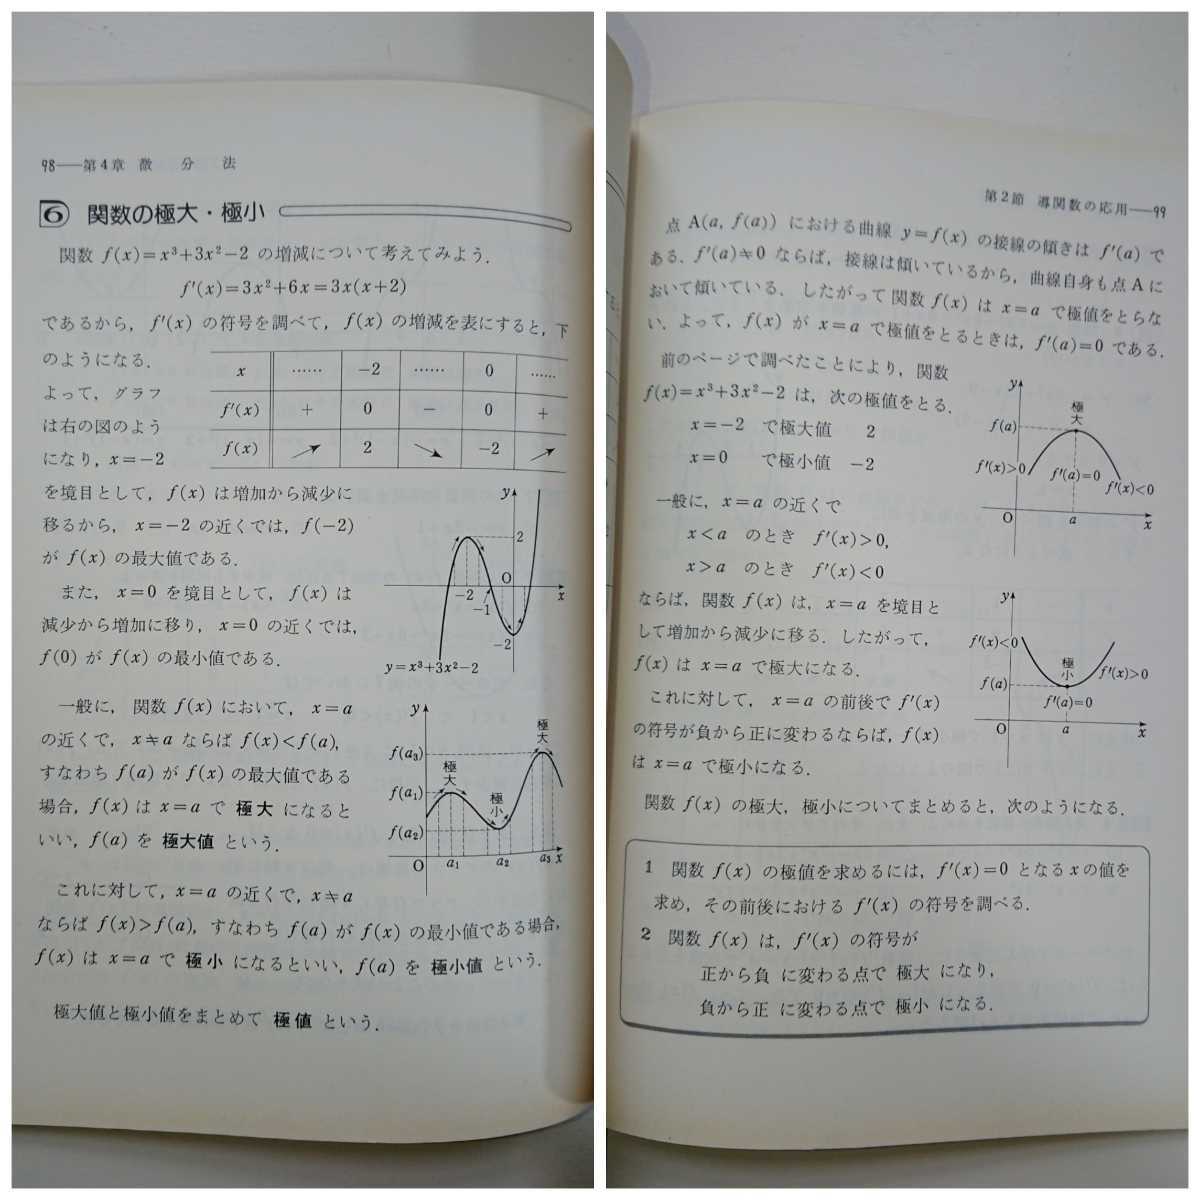 98——第4章 微分法
6 関数の極大・極小
関数 f(x)=x³+3x²−2 の増減について考えてみよう.
f′(x)=3x²+6x=3x(x+2)
であるから, f′(x) の符号を調べて, f(x) の増減を表にすると, 下
のようになる.
よって, グラフ
は右の図のよう
になり, x=−2
x …… −2 …… 0 ……
f′(x) + 0 − 0 +
f(x) ↗ 2 ↘ −2 ↗
を境目として, f(x) は増加から減少に
移るから, x=−2 の近くでは, f(−2)
が f(x) の最大値である.
また, x=0 を境目として, f(x) は
減少から増加に移り, x=0 の近くでは,
f(0) が f(x) の最小値である.
y
2
O
−2
−1
x
−2
y=x³+3x²−2
一般に, 関数 f(x) において, x=a
の近くで, x≠a ならば f(x)<f(a),
すなわち f(a) が f(x) の最大値である
場合, f(x) は x=a で 極大 になると
いい, f(a) を 極大値 という.
y
極大
f(a₃)
極大
f(a₁)
極小
f(a₂)
O a₁ a₂ a₃ x
これに対して, x=a の近くで, x≠a
ならば f(x)>f(a), すなわち f(a) が f(x) の最小値である場合,
f(x) は x=a で 極小 になるといい, f(a) を 極小値 という.
極大値と極小値をまとめて 極値 という.
第2節 導関数の応用——99
点 A(a, f(a)) における曲線 y=f(x) の接線の傾きは f′(a) で
ある. f′(a)≠0 ならば, 接線は傾いているから, 曲線自身も点 A に
おいて傾いている. したがって関数 f(x) は x=a で極値をとらな
い. よって, f(x) が x=a で極値をとるときは, f′(a)=0 である.
前のページで調べたことにより, 関数
f(x)=x³+3x²−2 は, 次の極値をとる.
x=−2 で極大値 2
x=0 で極小値 −2
一般に, x=a の近くで
x<a のとき f′(x)>0,
x>a のとき f′(x)<0
y
極大
f(a)
f′(x)>0 f′(a)=0 f′(x)<0
O a x
ならば, 関数 f(x) は, x=a を境目と
して増加から減少に移る. したがって,
f(x) は x=a で極大になる.
これに対して, x=a の前後で f′(x)
の符号が負から正に変わるならば, f(x)
は x=a で極小になる.
y
f′(x)<0
極小
f′(x)>0
f(a)
f′(a)=0
O a x
関数 f(x) の極大, 極小についてまとめると, 次のようになる.
1 関数 f(x) の極値を求めるには, f′(x)=0 となる x の値を
求め, その前後における f′(x) の符号を調べる.
2 関数 f(x) は, f′(x) の符号が
正から負 に変わる点で 極大 になり,
負から正 に変わる点で 極小 になる.